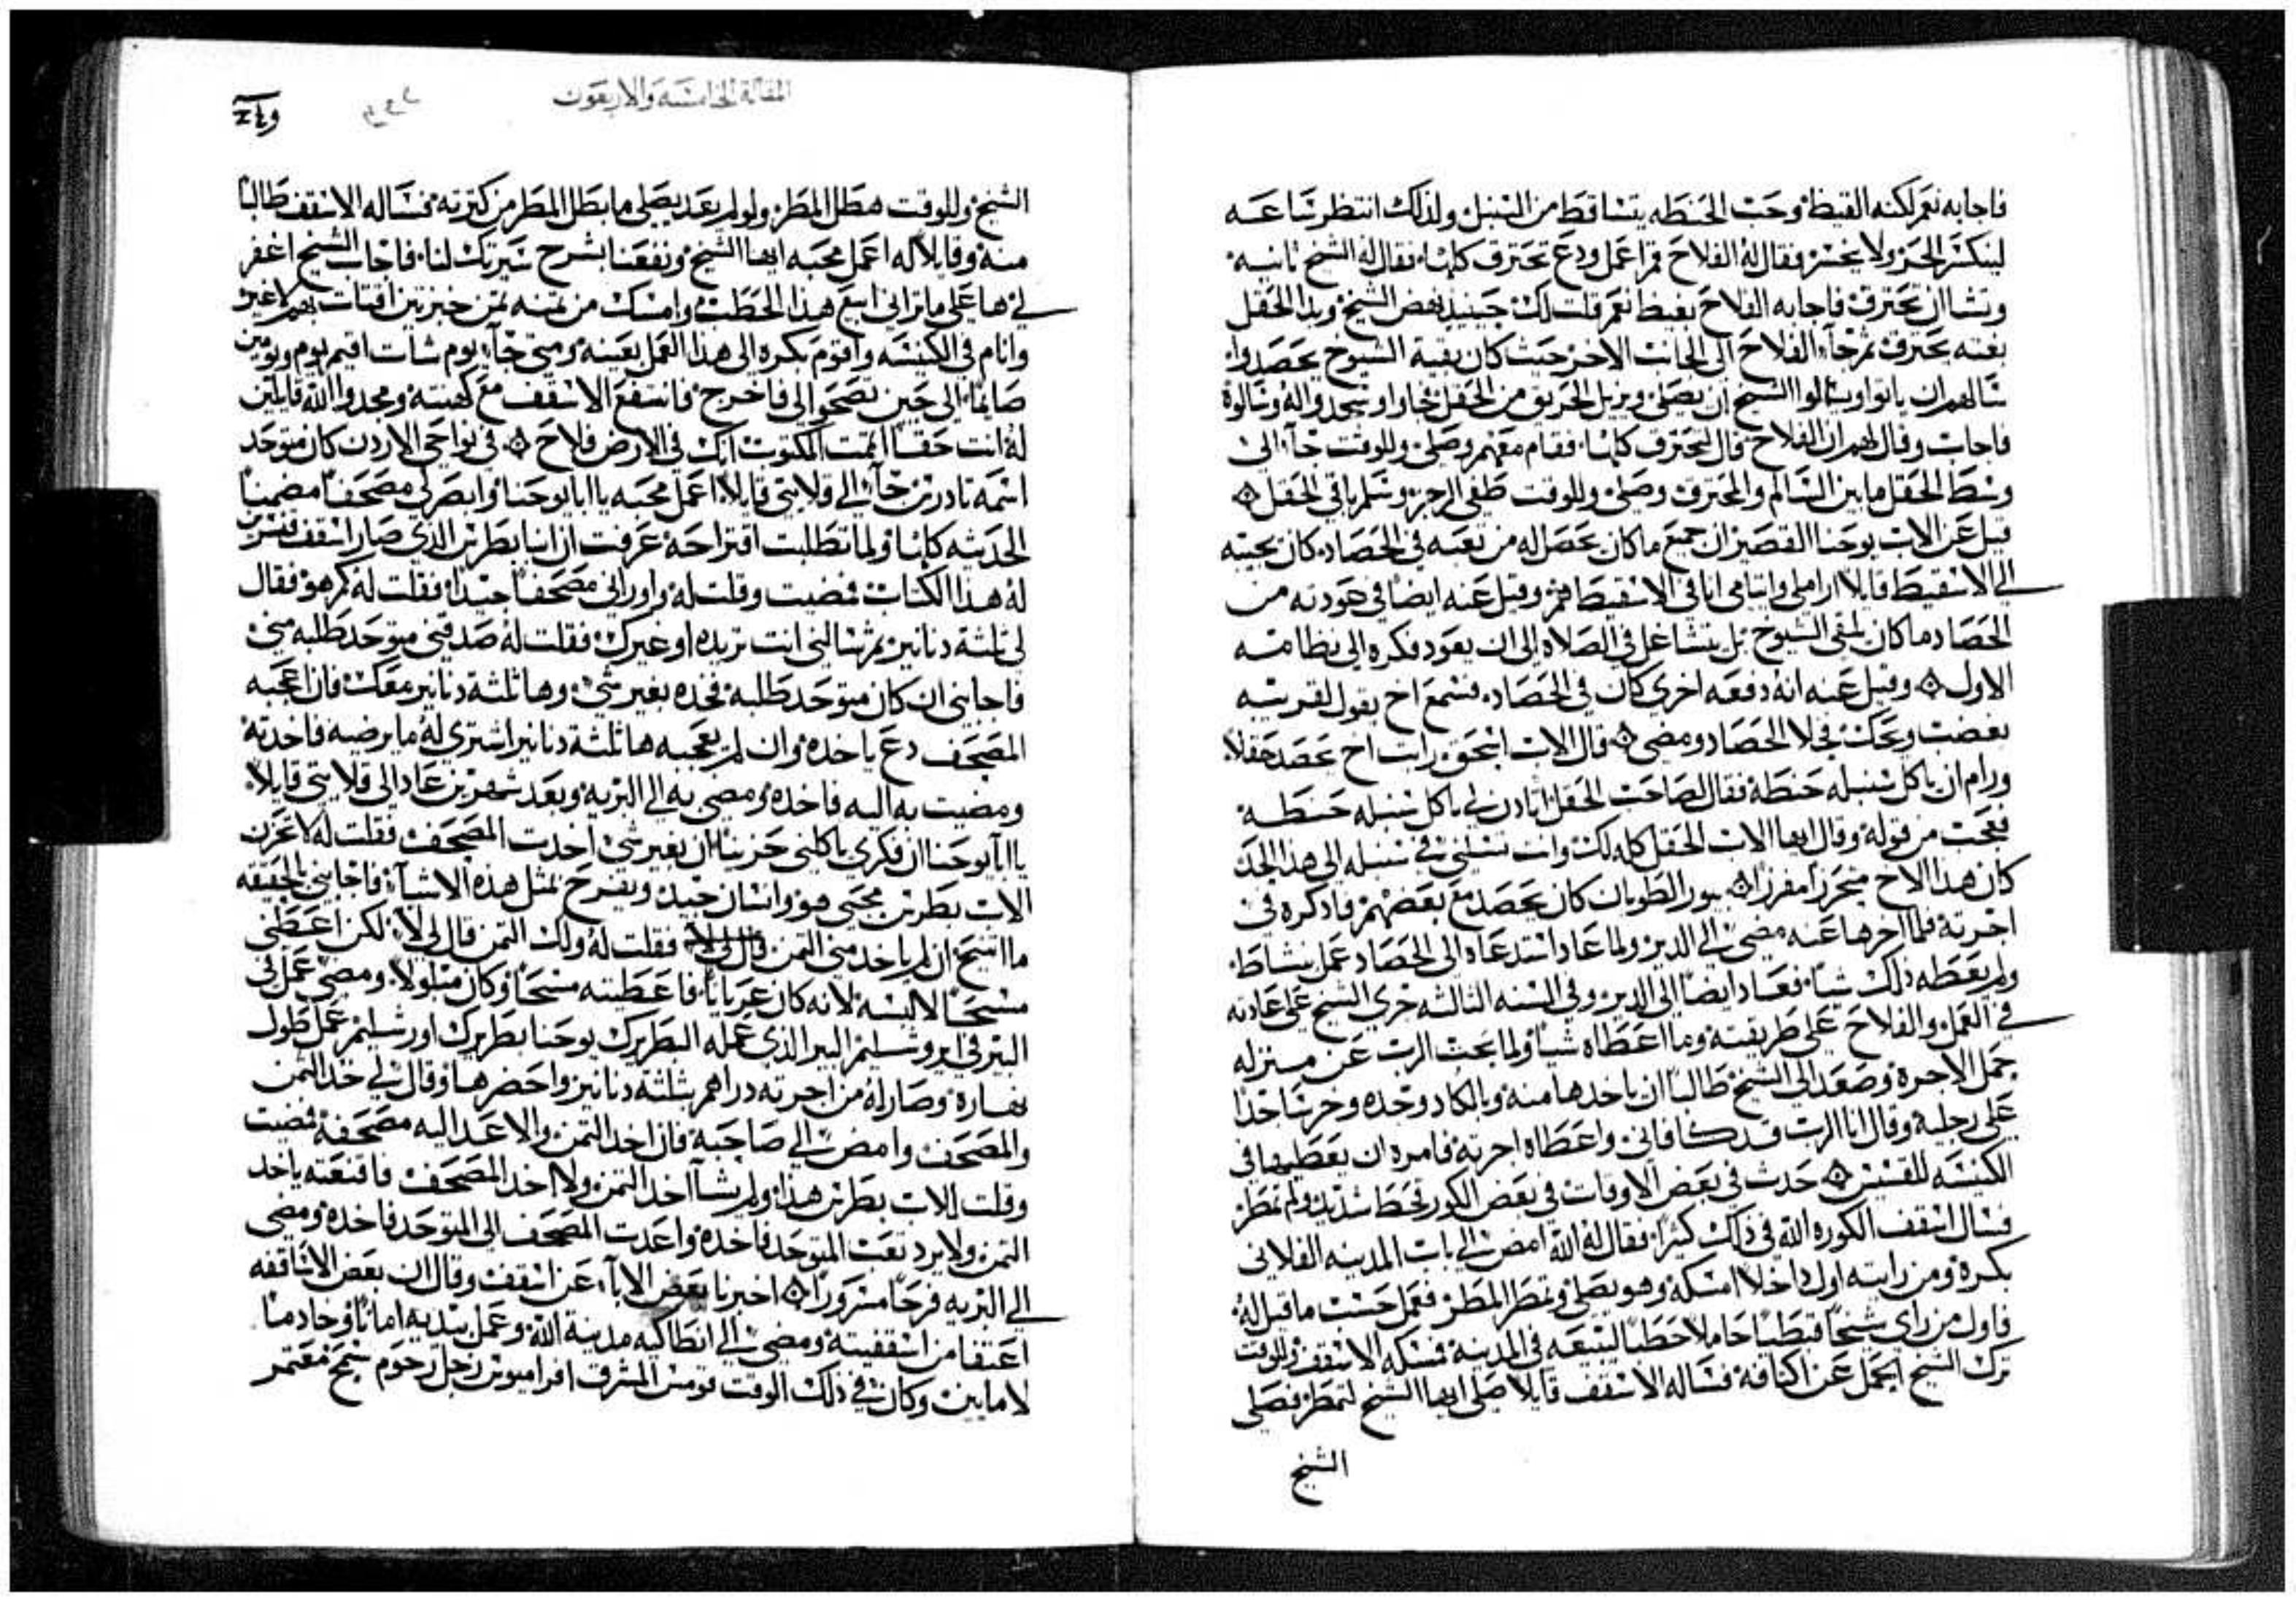 فاجابه نعم لكنه القيظ وحب الحنطه يتساقط من السنبل ولذلك انتظر ساعه
لينكسر الحر ولا يخسر فقال له الفلاح قم اعمل ودع تحترق كلها فقال له الشيخ ثانيه
وتشا ان تحترق فاجابه الفلاح بغيظ نعم قلت لك حينيد نهض الشيخ وبدا الحقل
بغته يحترق ثم جآ الفلاح الى الجانب الاخر حيث كان بقية الشيوخ يحصدوا
سالهم ان ياتوا ويسالوا الشيخ ان يصلى ويزيل الحريق من الحقل فجاوا وسجدوا له وسالوه
فاجاب وقال لهم ان الفلاح قال تحترق كلها فقام معهم وصلى وللوقت جآ الى
وسط الحقل ما بين السالم والمحترق وصلى وللوقت طفى الرجز وسلم باقي الحقل
قيل عن الاب يوحنا القصير ان جميع ما كان يحصل له من تعبه في الحصاد كان يجيبه
الى الاسقيط قايلا اراملي وايتامي انا في الاسقيط هم وقيل عنه ايضا في عودته من
الحصاد ما كان يلقى الشيوخ بل يتشاغل في الصلاه الى ان يعود فكره الى نظامه
الاول وقيل عنه انه دفعه اخرى كان في الحصاد فسمع اخ يقول لقريبه
بغضب ويحك فخلا الحصاد ومضى قال الاب اسحق رايت اخ يحصد حقلا
ورام ان ياكل سنبله حنطه فقال لصاحب الحقل اتادن لي ياكل سنبله حنطه
فعجب من قوله وقال ايها الاب الحقل كله لك وانت تسلني في سنبله الى هذا الحد
كان هذا الاخ متحررا مفرزا بيور الطوبان كان يحصد مع بعضهم فاذكره في
اجرته فلما اخرها عنه مضى الى الدير ولما عاد استدعاه الى الحصاد عمل بنشاط
ولم يعطه ذلك شيا فعاد ايضا الى الدير وفي السنه الثالثه جرى الشيخ على عادته
في العمل والفلاح على طريقته وما اعطاه شيا ولما بحث الرب عن منزله
حمل الاجره وصعد الى الشيخ طالبا ان ياخدها منه وبالكاد وجده وخر ساجدا
على رجليه وقال انا الرب قد كافاني واعطاه اجرته فامره ان يعطيها في
الكنيسه للقسيس حدث في بعض الاوقات في بعض الكور قحط شديد ولم تمطر
فسال اسقف الكوره الله في ذلك كثيرا فقال له الله امض الى باب المدينه الفلاني
بكره ومن رايته اول داخلا امسكه وهو يصلي وتمطر المطر فعمل حسب ما قيل له
فاول من راى شيخا قبطيا حاملا حطبا ليبيعه في المدينه فمسكه الاسقف وللوقت
ترك الشيخ الحمل عن اكتافه فساله الاسقف قايلا صلى ايها الشيخ لتمطر فصلى
الشيخ
المقالة الخامسه والاربعون
الشيخ وللوقت هطل المطر ولو لم يعد يصلي ما بطل المطر من كترته فساله الاسقف طالبا
منه وقايلا له اعمل محبه ايها الشيخ ونفعنا بشرح سيرتك لنا فاجاب الشيخ اغفر
لي ها على ما تراني ابيع هذا الحطب وامسك من تمنه تمن خبزتين اقتات بهم لا غير
وانام في الكنيسه واقوم بكره الى هذا العمل بعينه ومتى جآ يوم شات اقيم يوم ويومين
صايما الى حين تصحو الى فاخرج فانتفع الاسقف مع كهنته ومجدوا الله قايلين
له انت حقا اتممت المكتوب انك في الارض فلاح في نواحي الاردن كان متوحد
اسمه تادرس جآ الي قلايتي قايلا اعمل محبه يا ابا يوحنا وابصر لي مصحفا مضمنا
الحديثه كلها ولما تطلبت اقتراحه عرفت ان انبا بطرس الذي صار اسقف
له هذا الكتاب فمضيت وقلت له واوراني مصحفا جيدا فقلت له كم هو فقال
لي ثلثة دنانير ثم سالني انت تريده او غيرك فقلت له صدقني متوحد طلبه مني
فاجابني ان كان متوحد طلبه فخده بغير شي وها ثلثة دنانير معك فان اعجبه
المصحف دع ياخده وان لم يعجبه ها ثلثة دنانير اشتري له ما يرضيه فاخدته
ومضيت به اليه فاخده ومضى به الى البريه وبعد شهرين عاد الى قلايتي قايلا
يا ابا يوحنا ان فكري ياكلني حزينا ان بغير شي اخدت المصحف فقلت له لا تحزن
الاب بطرس محبي هو وانسان جيد ويفرح بمثل هذه الاشيآ فاجابني بالحقيقه
ما استريح ان لم ياخد مني التمن فقلت له ولك التمن قال لي لا لكن اعطني
مسحا لالبسه لانه كان عريانا فاعطيته مسحا وكان مبلولا ومضى عمل في
البير في ايروشليم البير الذي عمله البطريرك يوحنا بطريرك اورشليم عمل طول
نهاره وصار له من اجرته دراهم بثلثة دنانير واحضرها وقال لي خد التمن
والمصحف وامض الى صاحبه فان اخد التمن والا عد اليه مصحفه فمضيت
وقلت للاب بطرس هذا ولم يشا اخد التمن ولا اخد المصحف فاقنعته ياخد
التمن ولا يرد تعب المتوحد فاخده واعدت المصحف الى المتوحد فاخده ومضى
الى البريه فرحا مسرورا اخبرنا بعض الابآ عن اسقف وقال ان بعض الاساقفه
اعتفا من اسقفيته ومضى الى انطاكيه مدينة الله وعمل بيديه امانا وخادما
وكان في ذلك الوقت قومس المشرق افراميوس رجل رحوم سمح